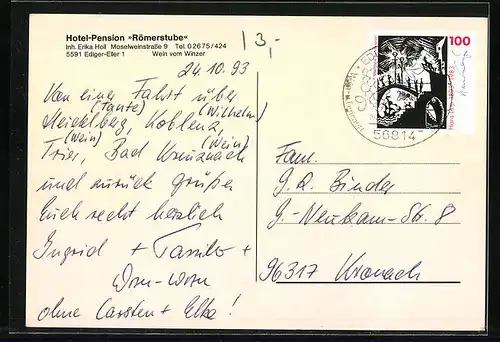 Hotel-Pension »Römerstube«
Inh. Erika Holl Moselweinstraße 9 Tel. 02675/424
5591 Ediger-Eller 1 Wein vom Winzer
3,-
24.10.93
Von einer Fahrt über
(Tante) (Wilhelm)
Heidelberg, Koblenz,
(Wein) (Wein)
Trier, Bad Kreuznach
und zurück grüßen
Euch recht herzlich
Ingrid + Tassilo +
ohne Carsten + Elke!
100
56814
Fam.
G. A. Binder
96317 Kronach